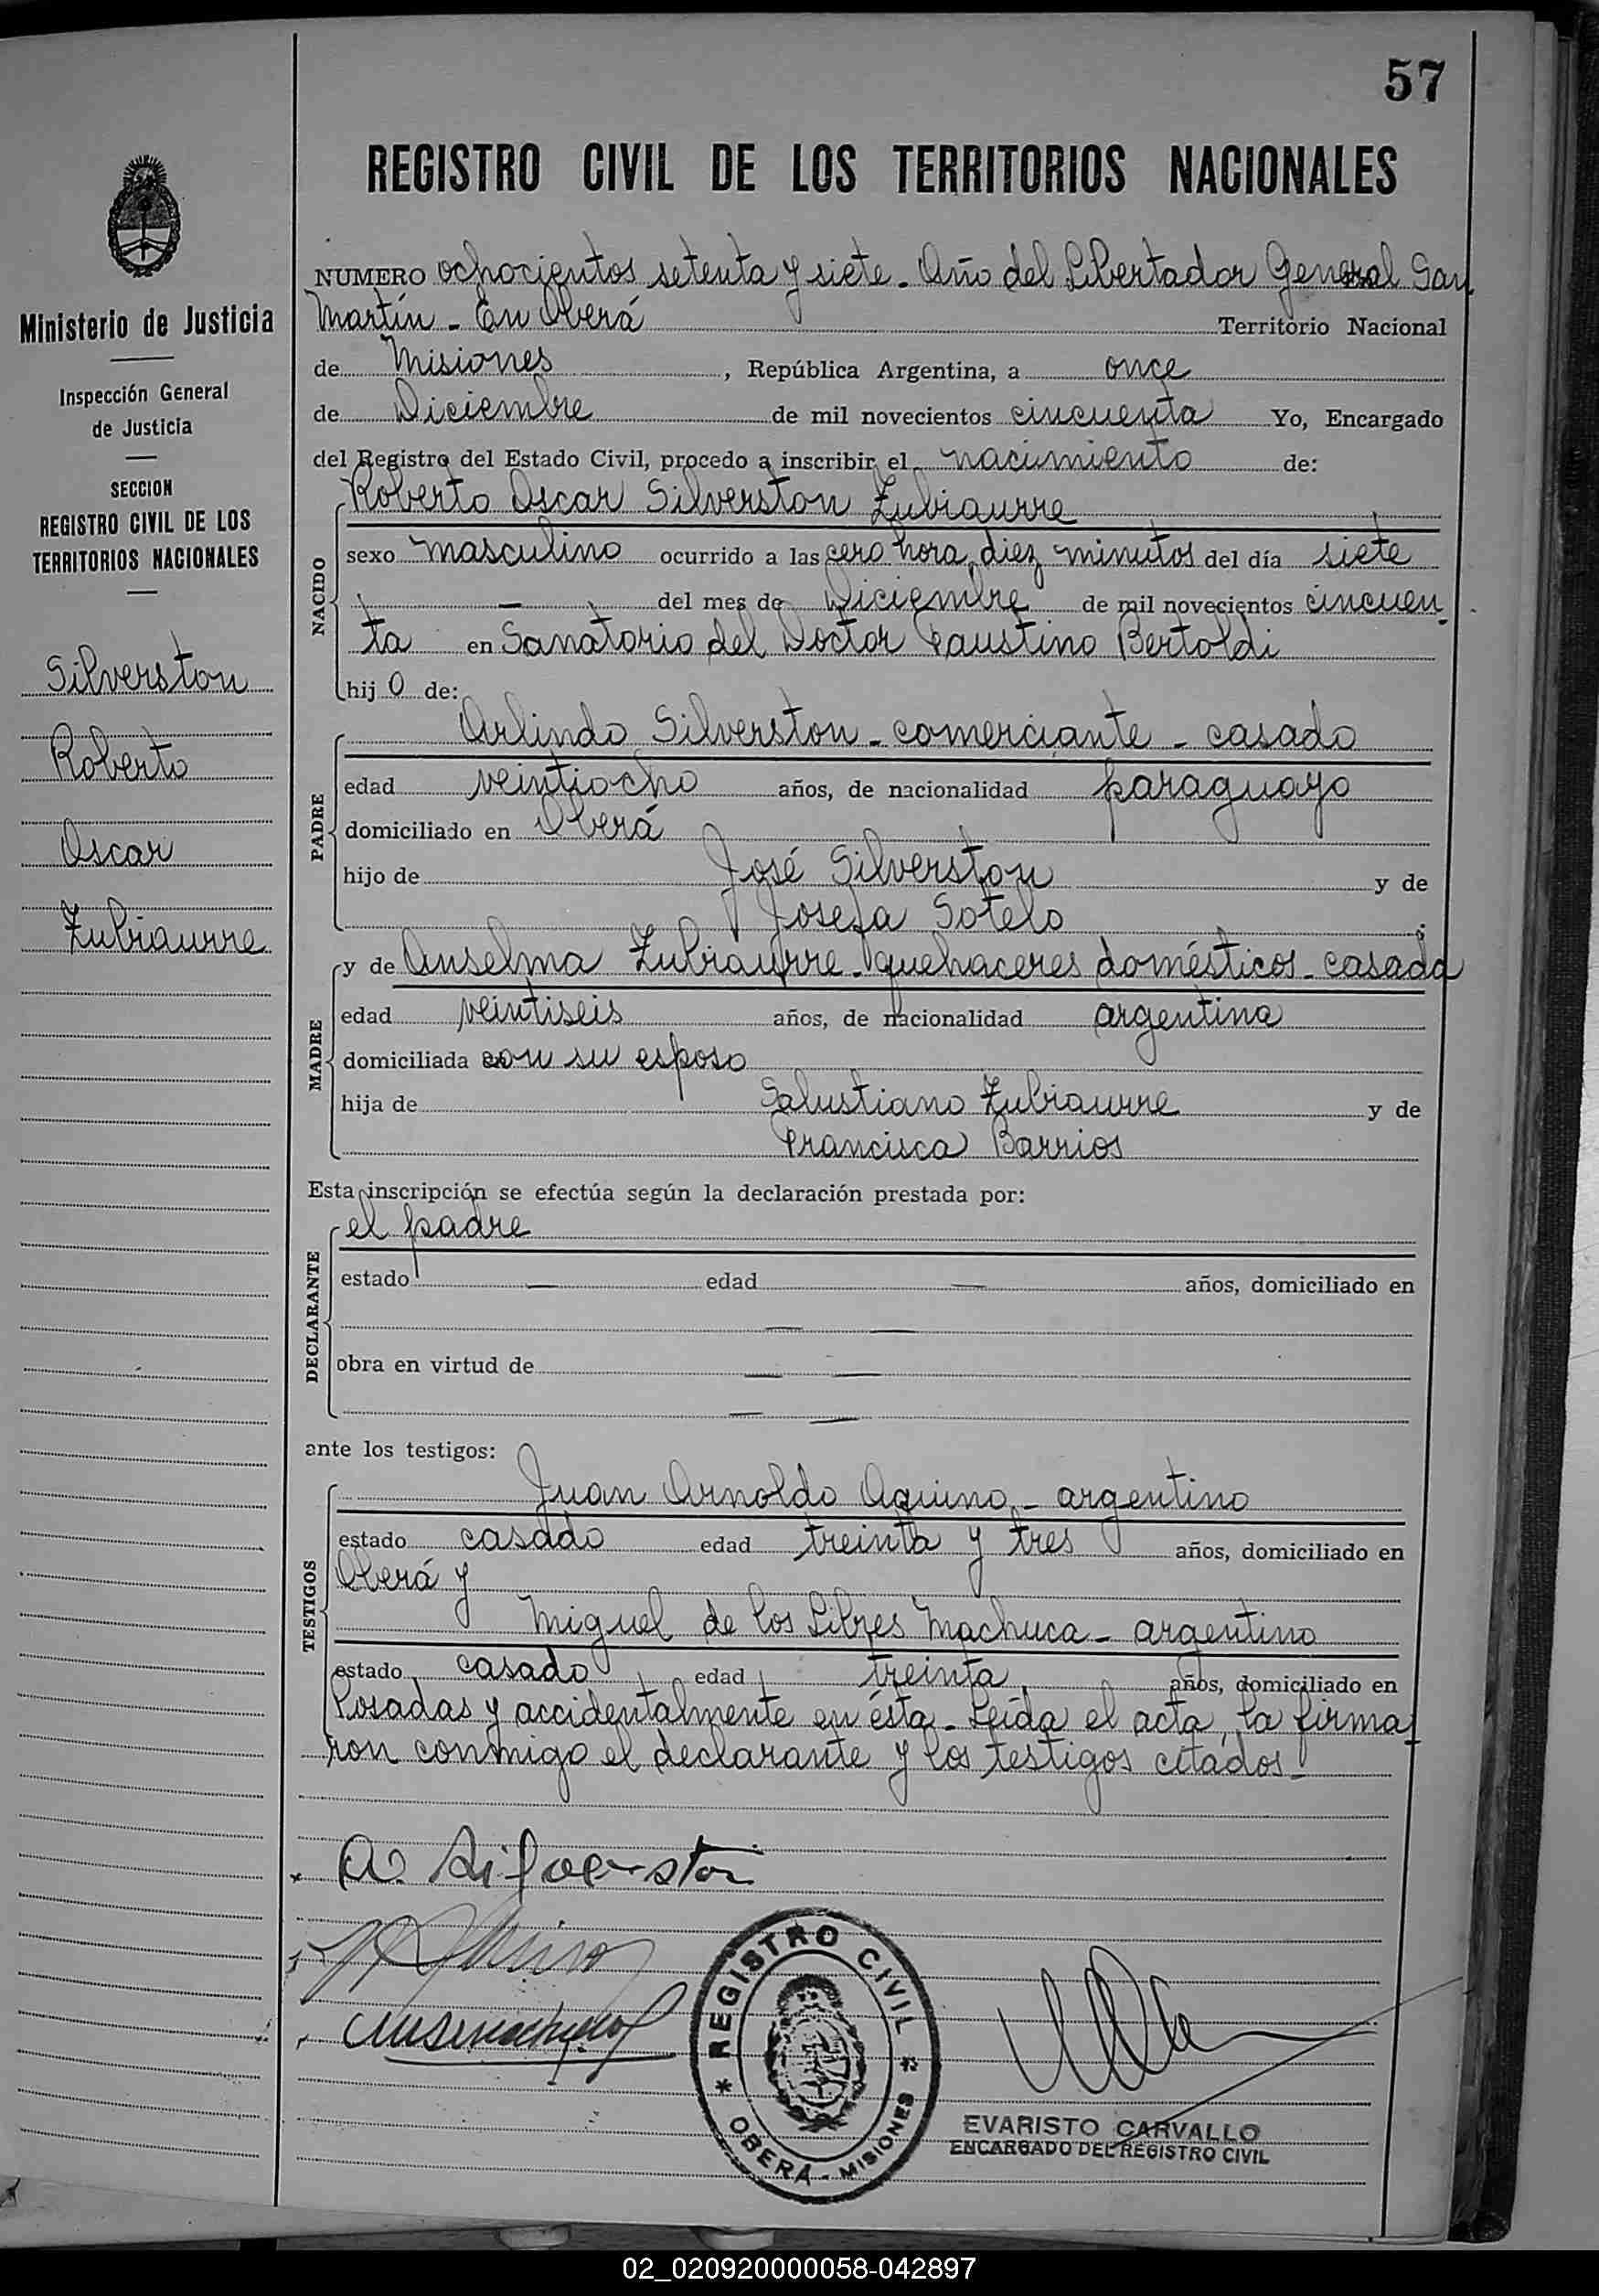 57
REGISTRO CIVIL DE LOS TERRITORIOS NACIONALES
Ministerio de Justicia
Inspección General
de Justicia
SECCION
REGISTRO CIVIL DE LOS
TERRITORIOS NACIONALES
Silverston
Roberto
Oscar
Zubiaurre
NUMERO ochocientos setenta y siete. Año del Libertador General San
Martín - En Oberá Territorio Nacional
de Misiones, República Argentina, a once
de Diciembre de mil novecientos cincuenta Yo, Encargado
del Registro del Estado Civil, procedo a inscribir el nacimiento de:
Roberto Oscar Silverston Zubiaurre
NACIDO
sexo masculino ocurrido a las cero hora, diez minutos del día siete
— del mes de Diciembre de mil novecientos cincuen-
ta en Sanatorio del Doctor Faustino Bertoldi
hij o de:
Arlindo Silverston - comerciante - casado
PADRE
edad veintiocho años, de nacionalidad paraguayo
domiciliado en Oberá
hijo de José Silverston y de
Josefa Sotelo ;
y de Anselma Zubiaurre - quehaceres domésticos - casada
MADRE
edad veintiseis años, de nacionalidad argentina
domiciliada con su esposo
hija de Salustiano Zubiaurre y de
Francisca Barrios
Esta inscripción se efectúa según la declaración prestada por:
el padre
DECLARANTE
estado — edad — años, domiciliado en
— —
obra en virtud de — —
— —
ante los testigos:
Juan Arnoldo Aquino - argentino
TESTIGOS
estado casado edad treinta y tres años, domiciliado en
Oberá y
Miguel de los Libres Machuca - argentino
estado casado edad treinta años, domiciliado en
Posadas y accidentalmente en ésta - Leída el acta, la firma-
ron conmigo el declarante y los testigos citados -
A. Silverston
REGISTRO CIVIL
OBERA - MISIONES
EVARISTO CARVALLO
ENCARGADO DEL REGISTRO CIVIL
02_020920000058-042897